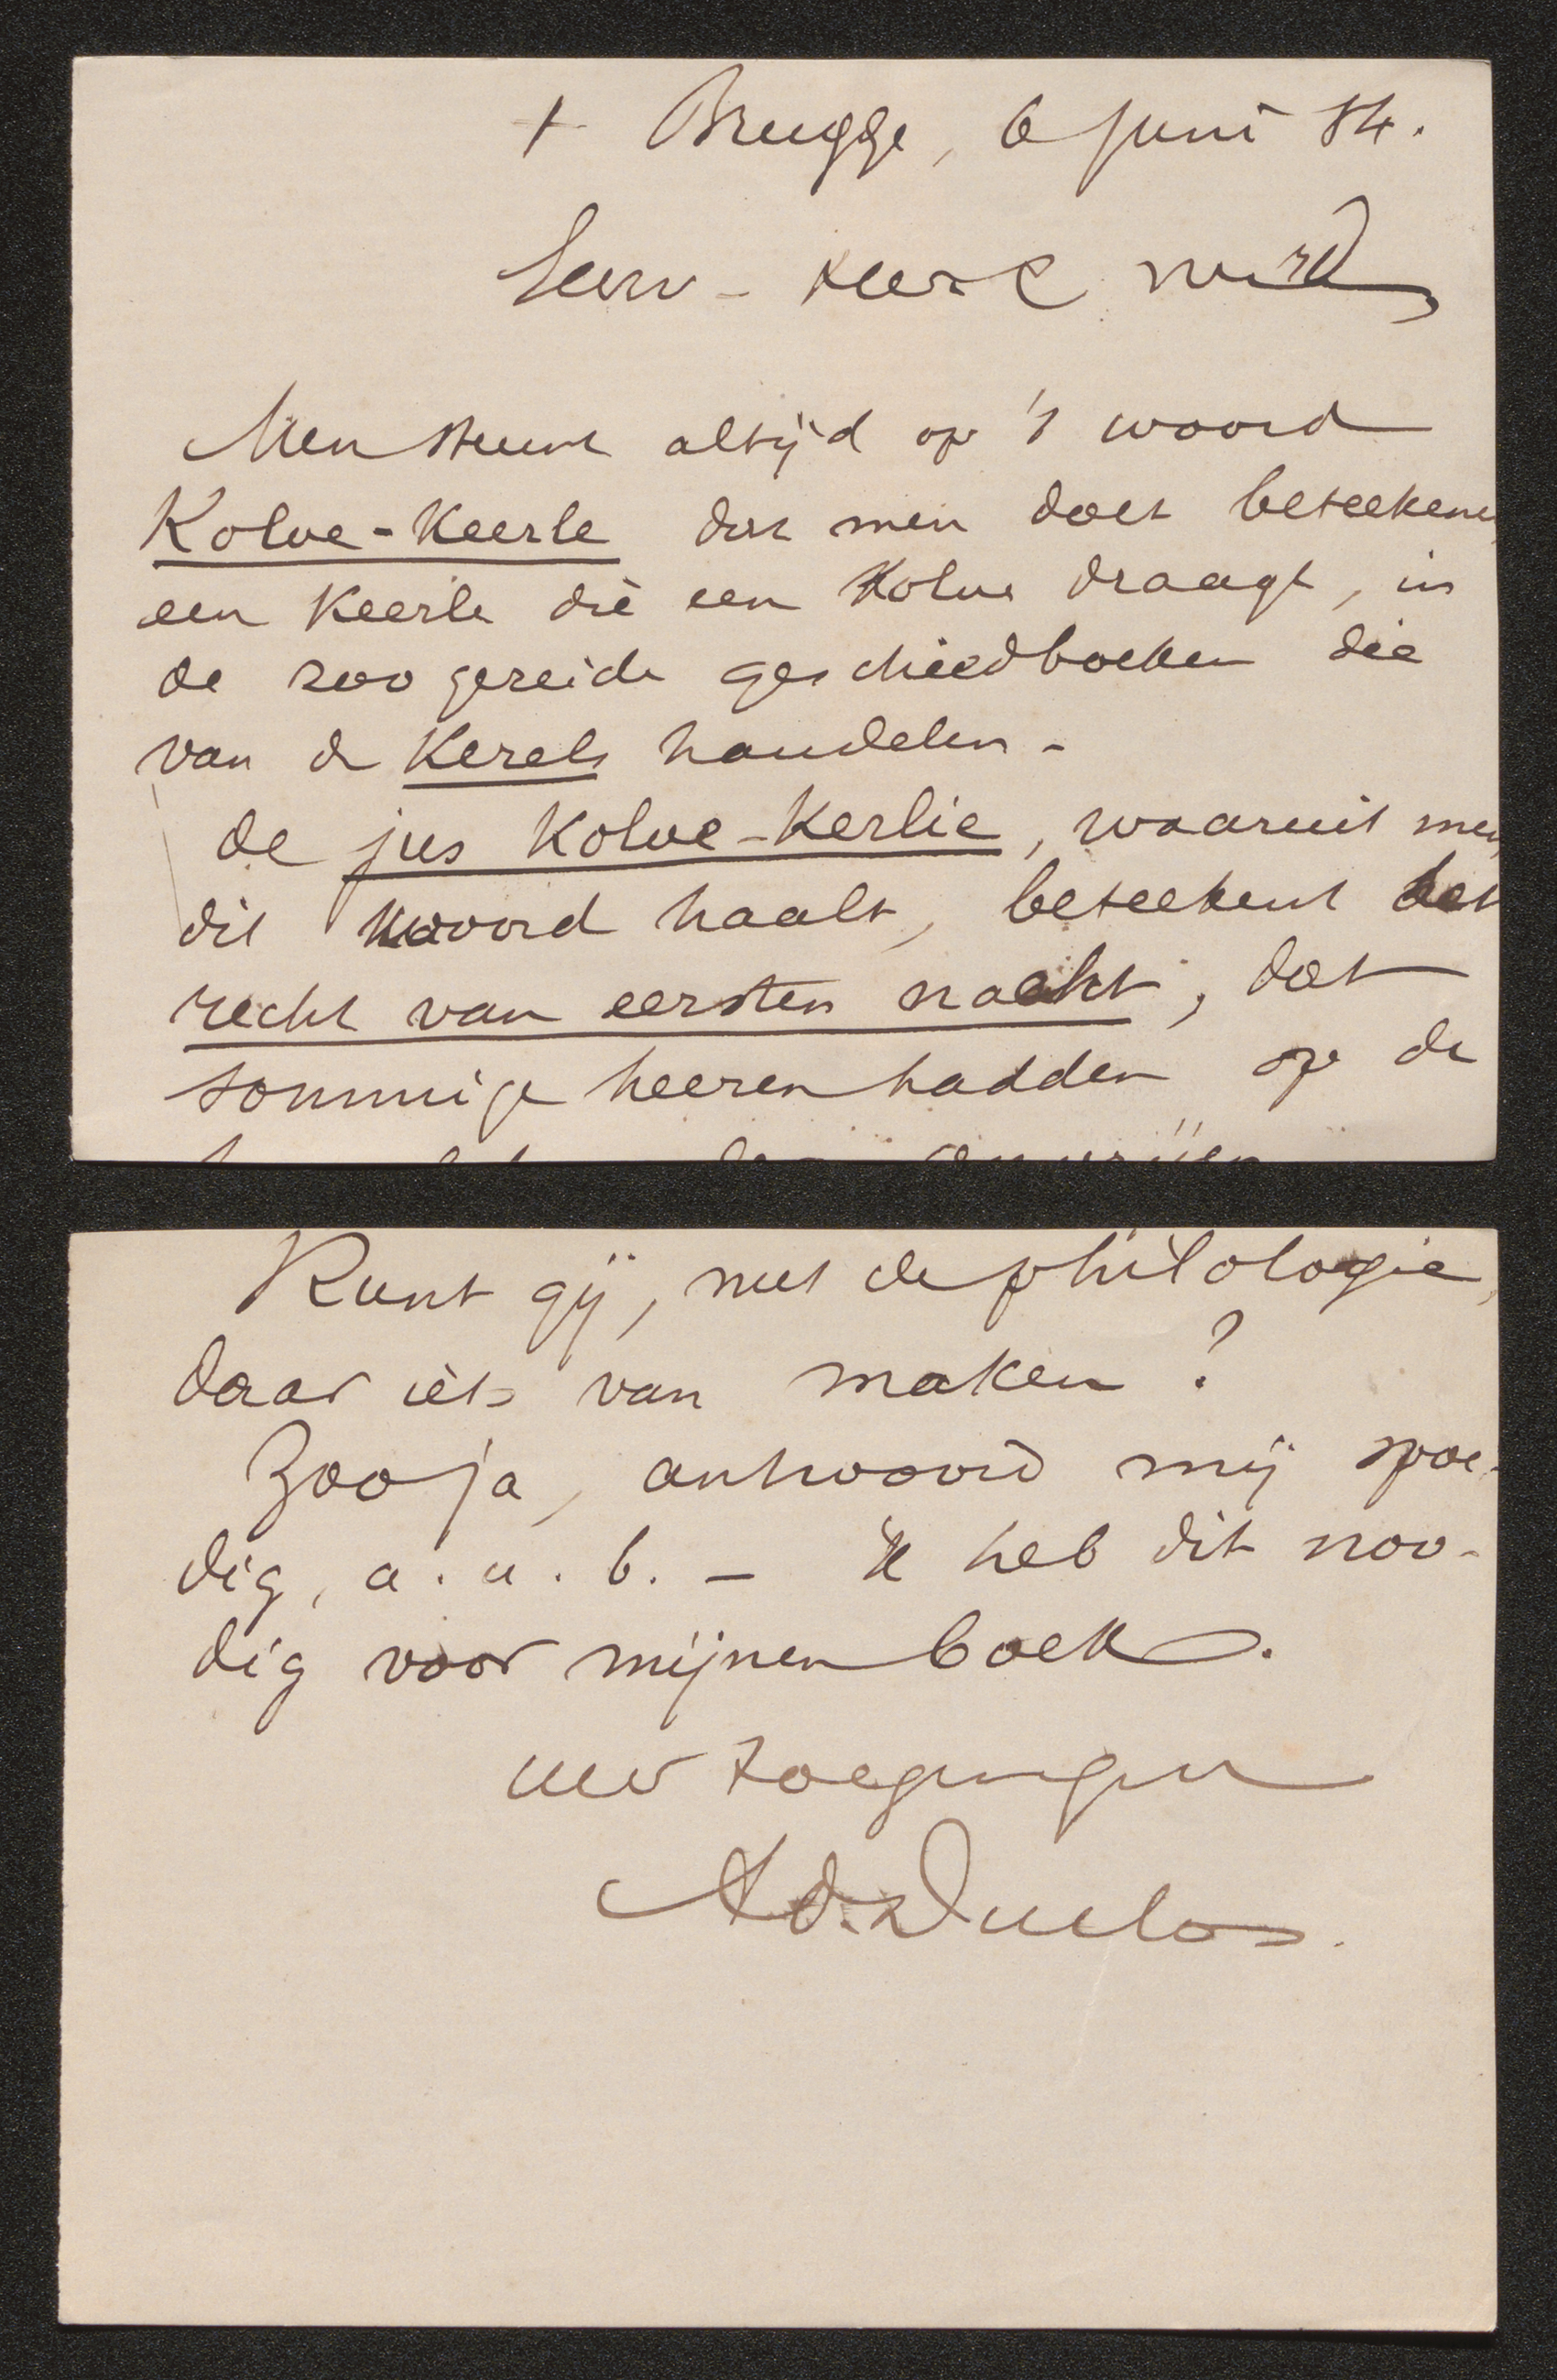 + Brugge, 6 Juni 84.
Eerw - Heer & vriend
Men steunt altijd op 't woord
Kolve-Keerle dat men doet beteekenen
een Keerle die een Kolve draagt, in
de zoo gezeide geschiedboeken die
van de Kerels handelen -
De jus Kolve-Kerlie, waaruit men
dit woord haalt, beteekent het
recht van eersten nacht, dat
sommige heeren hadden op de
Kunt gij, met de philologie,
daar iets van maken?
Zoo ja, antwoord mij spoe-
dig, a. u. b. - 'k heb dit noo-
dig voor mijnen boek.
uw toegenegen
Ad. Duclos.